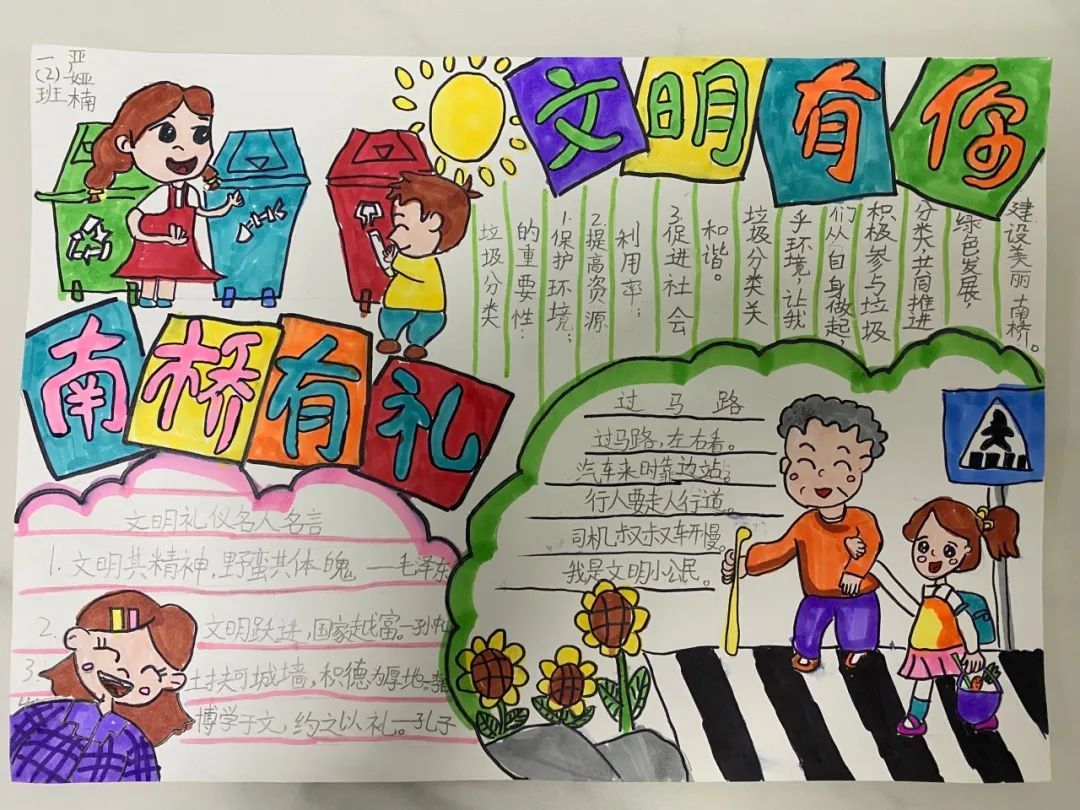 一(2)班
严娅楠
文明有你
南桥有礼
垃圾分类
的重要性:
1.保护环境;
2.提高资源
利用率;
3.促进社会
和谐。
垃圾分类关
乎环境,让我
们从自身做起
积极参与垃圾
分类,共同推进
绿色发展,
建设美丽南桥。
过马路
过马路,左右看。
汽车来时靠边站。
行人要走人行道。
司机叔叔车开慢。
我是文明小公民。
文明礼仪名人名言
1. 文明其精神,野蛮其体魄 —毛泽东
2. 文明跃进,国家越富。—孙
3. 土扶可城墙,积德为厚地。
博学于文,约之以礼。—孔子